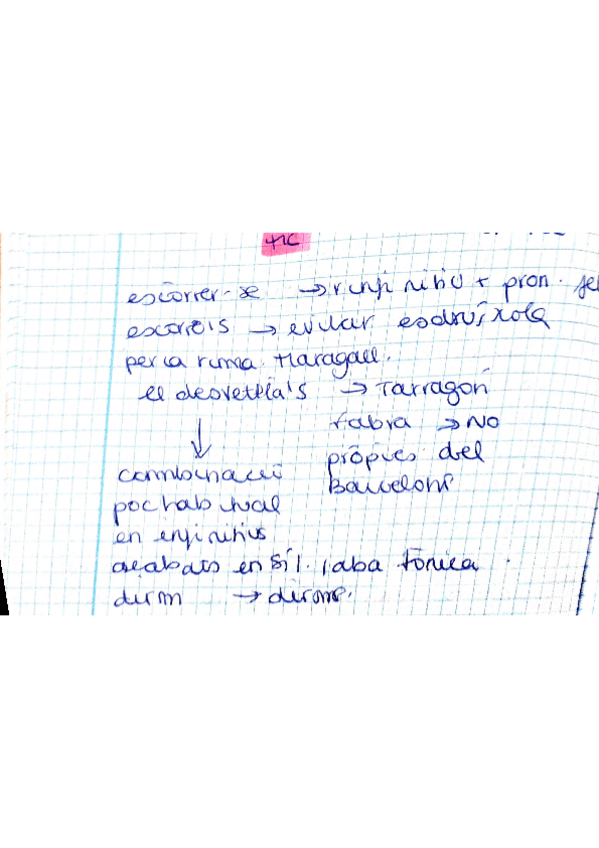 +ic
escórrer-se → infinitiu + pron. fe
escorre's → evitar esdrúixola
per la rima. Maragall.
el desvetlla's → Tarragoní
Fabra → No
pròpies del
Barceloní
↓
combinació
poc habitual
en infinitius
acabats en síl·laba tònica.
dirm → dirme.